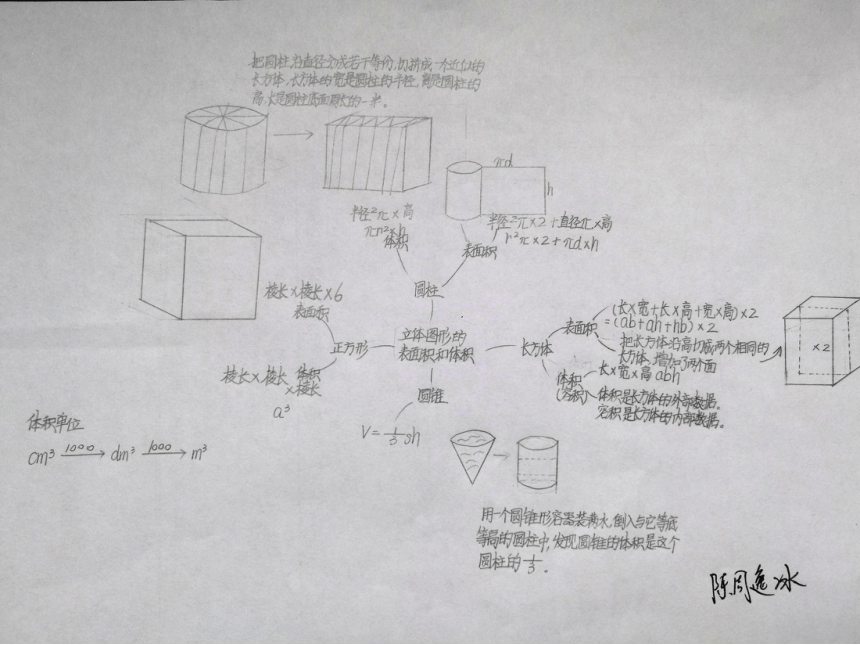 把圆柱沿直径分成若干等份,切拼成一个近似的
长方体,长方体的宽是圆柱的半径,高是圆柱的
高,长是圆柱底面周长的一半。
πd
h
半径²π×高
πr²×h
体积
半径²π×2+直径π×高
r²π×2+πd×h
表面积
圆柱
棱长×棱长×6
表面积
正方形
棱长×棱长
×棱长
体积
a³
立体图形的
表面积和体积
长方体
表面积
(长×宽+长×高+宽×高)×2
=(ab+ah+hb)×2
把长方体沿高切成两个相同的
长方体,增加了两个面
×2
体积
(容积)
长×宽×高 abh
体积是长方体的外部数据。
容积是长方体的内部数据。
圆锥
V=1/3sh
体积单位
cm³ 1000 dm³ 1000 m³
用一个圆锥形容器装满水,倒入与它等底
等高的圆柱中,发现圆锥的体积是这个
圆柱的1/3。
陈周逸冰